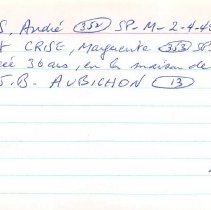 S, André (352) SP-M-2-4-4
& CRISE, Marguerite (353) SP
36 ans, en la maison de
J.B. AUBICHON (13)